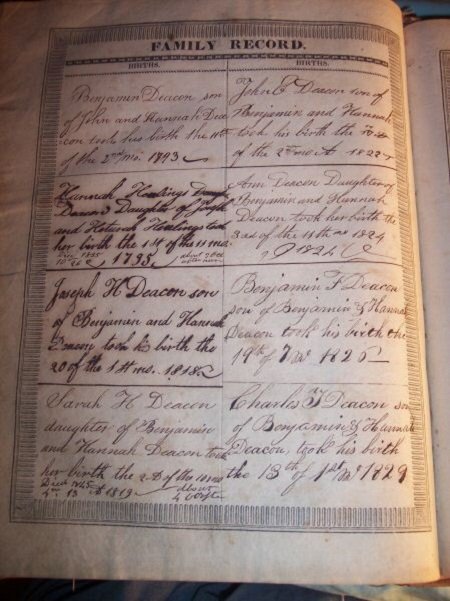 FAMILY RECORD.
BIRTHS.
Benjamin Deacon son
of John and Hannah Dea
con took his birth the 11th
of the 2nd mo. 1793
Hannah Healings
Deacon Daughter of Joseph
and Healings took
her birth the 1st of the 11 mo.
1795
Joseph H Deacon son
of Benjamin and Hannah
Deacon took his birth the
20 of the 1st mo. 1818
Sarah H Deacon
daughter of Benjamin
and Hannah Deacon took
her birth the 2d of the 10 mo
Died 1845 1819 about
4 13 4
BIRTHS.
John C Deacon son of
Benjamin and Hannah
took his birth the
of the 2nd mo 1822
Ann Deacon Daughter of
Benjamin and Hannah
Deacon took her birth the
3rd of the 11th mo 1824
1824
Benjamin F Deacon
son of Benjamin & Hannah
Deacon took his birth the
19th of 7 mo 1826
Charles Deacon son
of Benjamin & Hannah
Deacon, took his birth
the 13th of 1st mo 1829